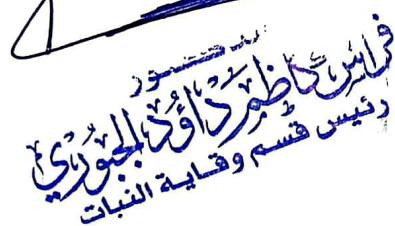 الدكتور
فراس كاظم داؤد الجبوري
رئيس قسم وقاية النبات